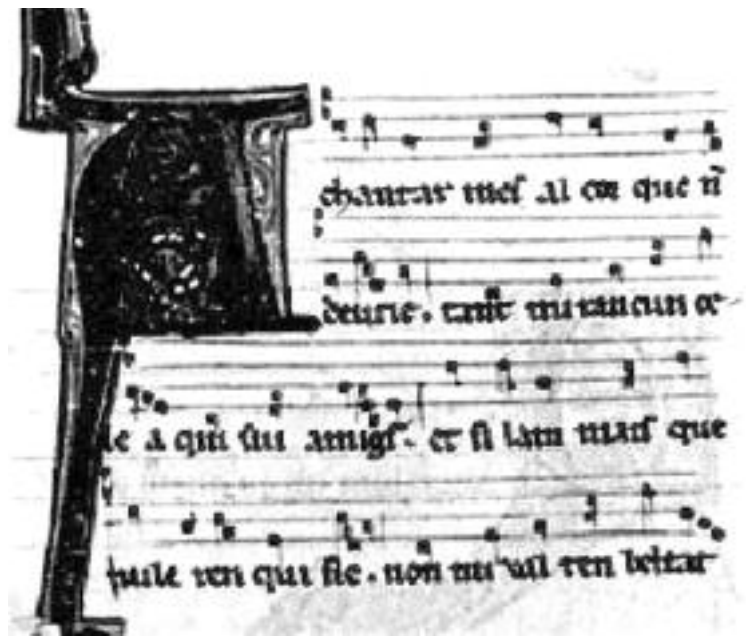 A
chantar mes al cor que ñ
deurie. tant mi rancun ce
le a qui sui amigs. et si lam mais que
nule ren qui sie. non mi val ren beltat